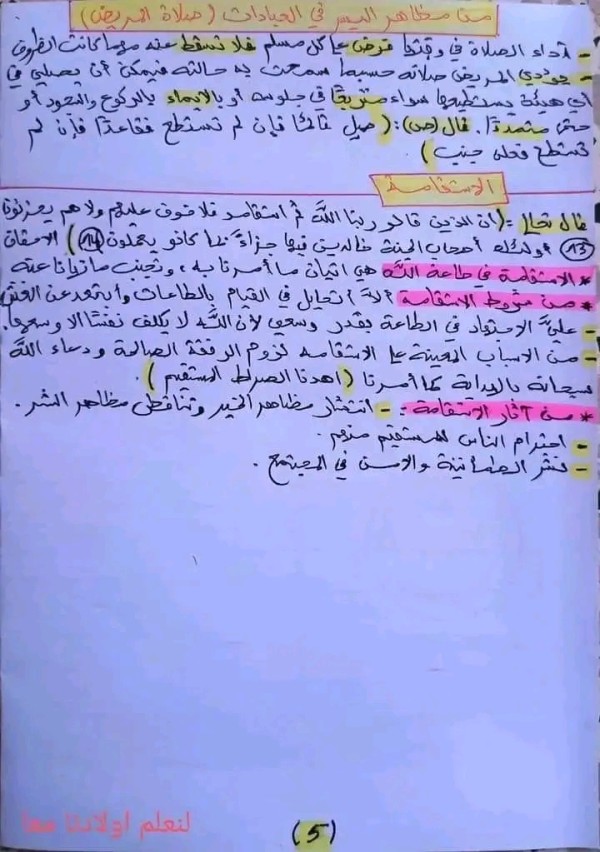 من مظاهر اليسر في العبادات (صلاة المريض)
- أداء الصلاة في وقتها فرض على كل مسلم فلا تسقط عنه مهما كانت الظروف
- يؤدي المريض صلاته حسبما سمحت به حالته فيمكن أن يصلي في
أي هيئة يستطيعها سواء في جلوسه أو بالإيماء بالركوع والسجود أو
حتى متمددًا. قال (ص): (صل قائمًا فإن لم تستطع فقاعدًا فإن لم
تستطع فعلى جنب)
الاستقامة
قال تعالى: (إن الذين قالو ربنا الله ثم استقامو فلا خوف عليهم ولا هم يحزنون
(13) أولئك أصحاب الجنة خالدين فيها جزاءً بما كانو يعملون (14)) الأحقاف
* الاستقامة في طاعة الله هي اتيان ما أمرنا به، وتجنب ما نهانا عنه
* من شروط الاستقامة ألا أتحايل في القيام بالطاعات وأبتعد عن الغش
- عليَّ الاجتهاد في الطاعة بقدر وسعي لأن الله لا يكلف نفسًا إلا وسعها.
- من الاسباب المعينة على الاستقامه لزوم الرفقة الصالحة ودعاء الله
سبحانه بالهداية كما أمرنا (اهدنا الصراط المستقيم).
* من آثار الاستقامة: - انتشار مظاهر الخير وتناقص مظاهر الشر.
- احترام الناس للمستقيم منهم.
- نشر الطمأنينة والامن في المجتمع.
لنعلم اولادنا معا
(5)